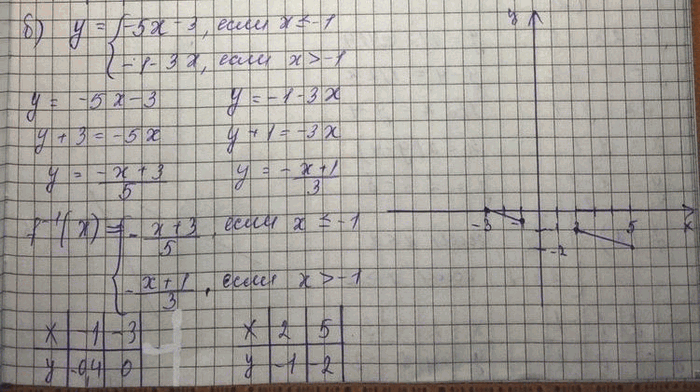 б) y = { -5x-3, если x≤-1
-1-3x, если x>-1
y = -5x-3 y = -1-3x
y+3=-5x y+1=-3x
y = -x+3/5 y = -x+1/3
f⁻¹(x) = { -x+3/5, если x≤-1
-x+1/3, если x>-1
x | -1 | -3
y | -0,4 | 0
x | 2 | 5
y | -1 | 2
y
-3 -1 5 x
-2